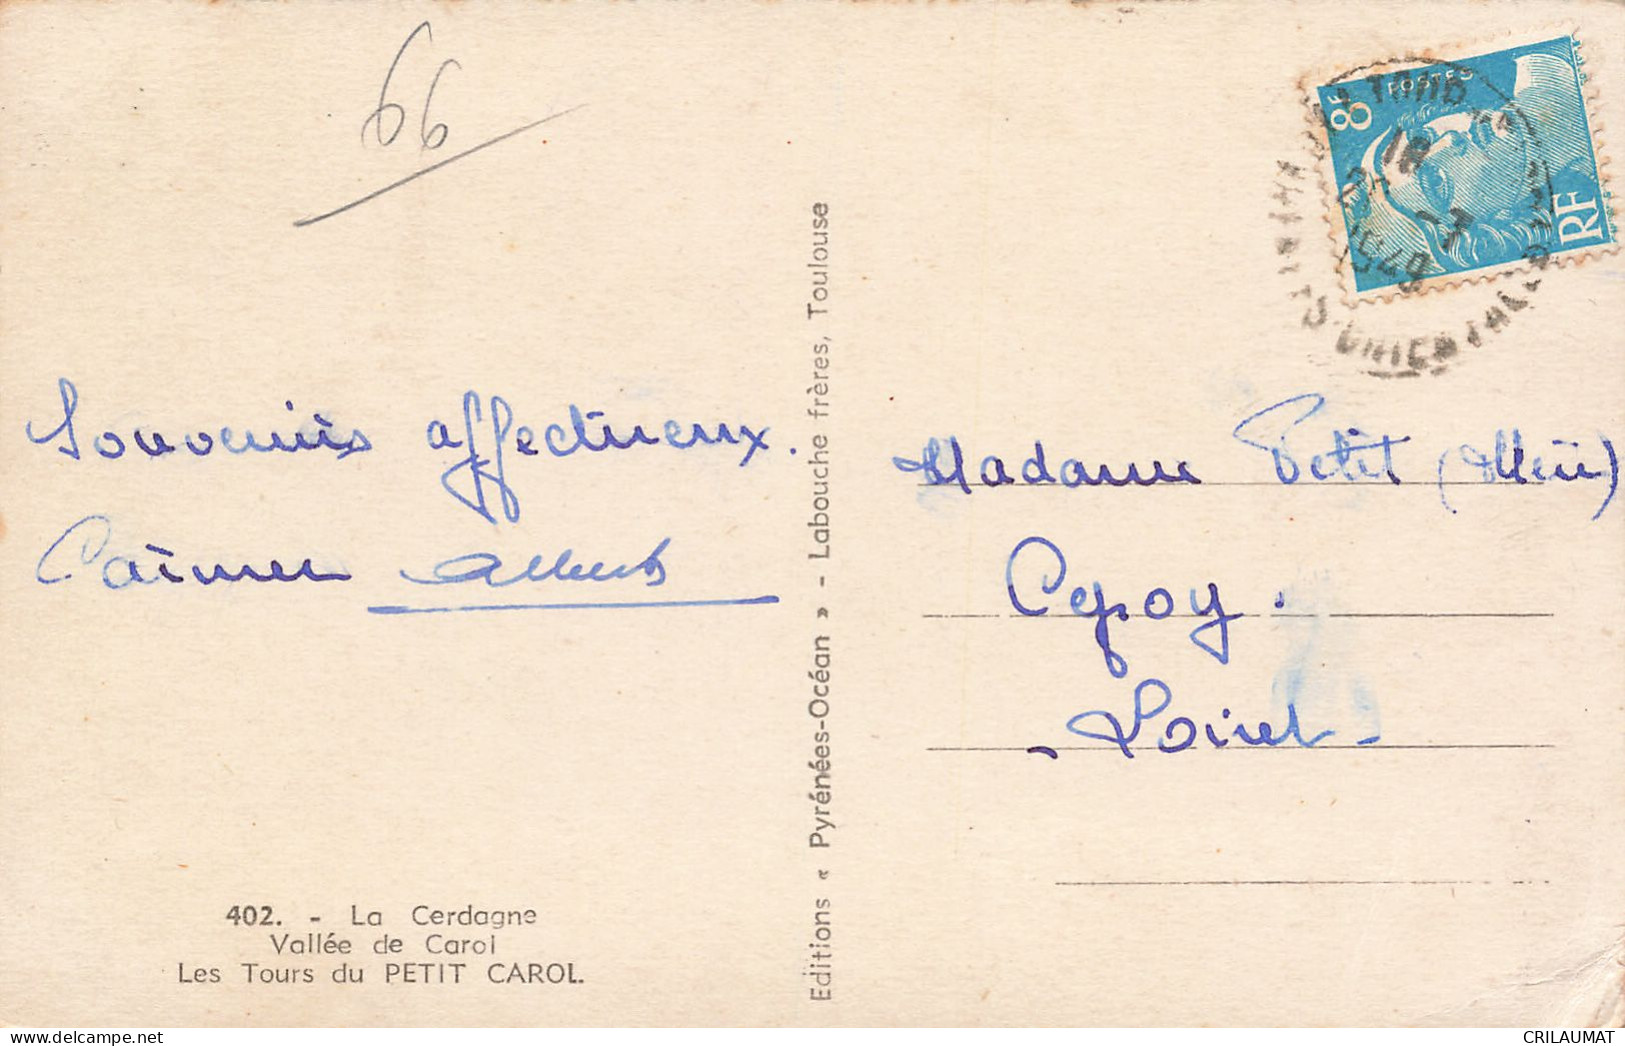 66
Souvenirs affectueux.
Albert
402. - La Cerdagne
Vallée de Carol
Les Tours du PETIT CAROL.
Editions « Pyrénées-Océan » - Labouche frères, Toulouse
8F
POSTES
RF
18
1949
Madame Petit
Cepoy.
- Loiret -
CRILAUMAT